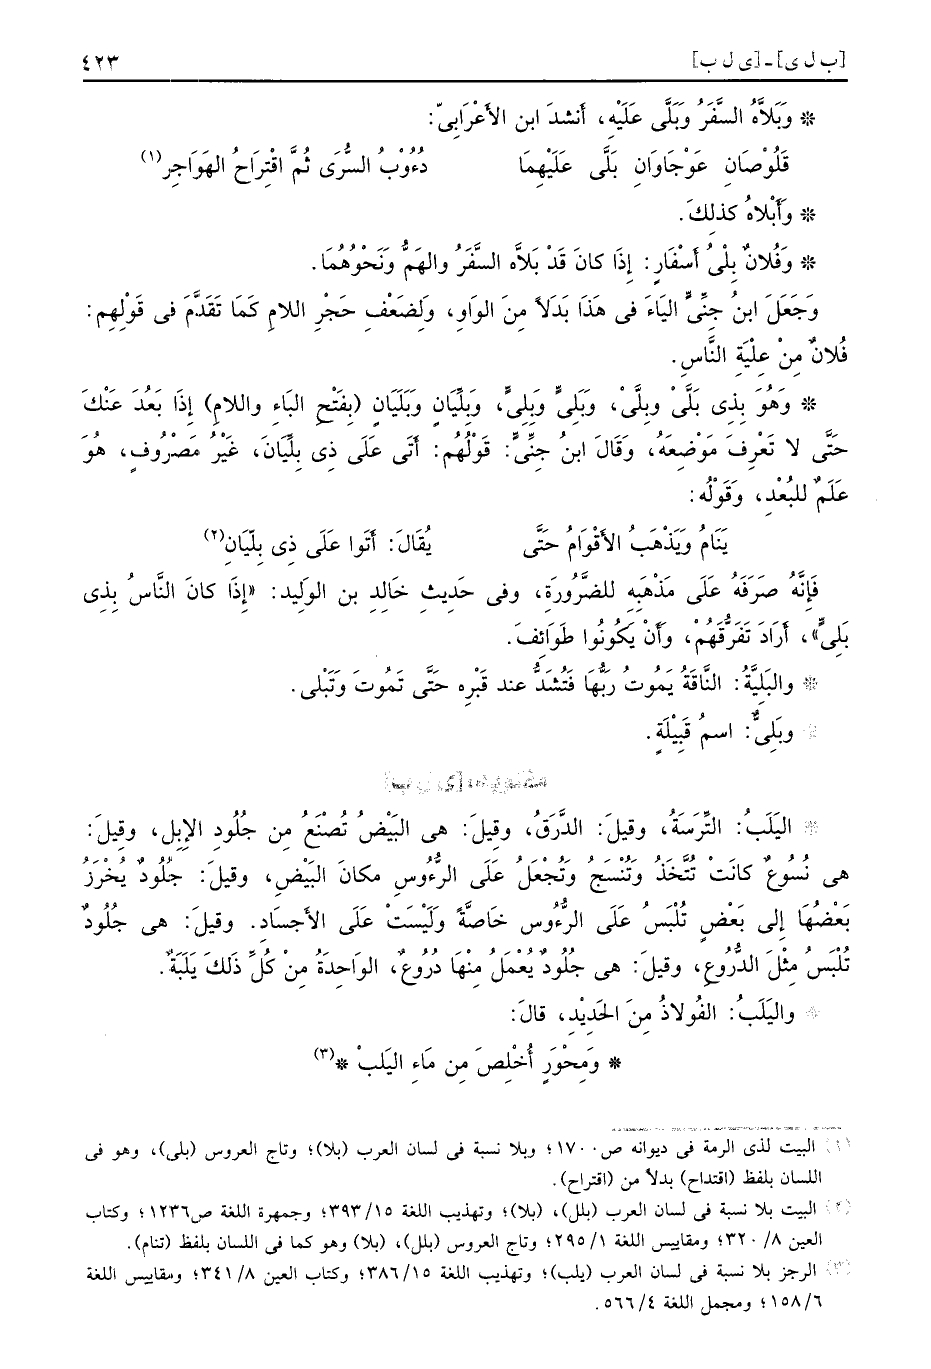 [ب ل ى] - [ى ل ب] ٤٢٣
* وَبَلاَّهُ السَّفَرُ وَبَلَّى عَلَيْهِ، أَنشدَ ابن الأَعْرَابِىّ:
قَلُوْصَانِ عَوْجَاوَانِ بَلَّى عَلَيْهِمَا دُءُوْبُ السُّرَى ثُمَّ اقْتِرَاحُ الهَوَاجِرِ(١)
* وأَبْلاهُ كذلكَ.
* وفُلانٌ بِلْىُ أَسْفَارٍ: إذَا كانَ قَدْ بَلاَّه السَّفَرُ والهَمُّ وَنَحْوُهُمَا.
وَجَعَلَ ابنُ جِنِّىٍّ اليَاءَ فى هَذَا بَدَلاً مِنَ الوَاوِ، ولَضَعْفِ حَجْزِ اللامِ كَمَا تَقَدَّمَ فى قَوْلِهِم:
فُلانٌ مِنْ عِلْيَةِ النَّاسِ.
* وَهُوَ بِذِى بَلَّىْ وبِلَّىْ، وبَلِىٍّ وبِلِىٍّ، وَبِلِّيَانٍ وَبَلَيَانٍ (بِفَتْحِ البَاءِ واللامِ) إِذَا بَعُدَ عَنْكَ
حَتَّى لا تَعْرِفَ مَوْضِعَهُ، وقَالَ ابنُ جِنِّىٍّ: قَوْلُهُم: أَتَى عَلَى ذِى بِلِّيَانَ، غَيْرُ مَصْرُوفٍ، هُوَ
عَلَمٌ للبُعْدِ، وَقَوْلُه:
يَنَامُ وَيَذْهَبُ الأَقْوَامُ حَتَّى يُقَالَ: أَتَوا عَلَى ذِى بِلِّيَانِ(٢)
فَإنَّهُ صَرَفَهُ عَلَى مَذْهَبِهِ للضَّرُورَةِ، وفى حَدِيثِ خَالِدِ بن الوَلِيد: «إِذَا كانَ النَّاسُ بِذِى
بَلِىٍّ»، أَرَادَ تَفَرُّقَهُمْ، وَأَنْ يَكُونُوا طَوَائِفَ.
* والبَلِيَّةُ: النَّاقَةُ يَمُوتُ رَبُّهَا فَتُشَدُّ عند قَبْرِه حَتَّى تَمُوتَ وَتَبْلَى.
* وبَلِىٌّ: اسمُ قَبِيْلَةٍ.
* اليَلَبُ: التِّرَسَةُ، وقيلَ: الدَّرَقُ، وقيلَ: هى البَيْضُ تُصْنَعُ من جلُودِ الإبِل، وقيلَ:
هى نُسُوعٌ كانَتْ تُتَّخَذُ وَتُنْسَجُ وَتُجْعَلُ عَلَى الرُّءُوسِ مكانَ البَيْضِ، وقيلَ: جلُودٌ يُخْرَزُ
بَعْضُهَا إلى بَعْضٍ تُلْبَسُ على الرُّءُوسِ خَاصَّةً وَلَيْسَتْ عَلَى الأجسَادِ. وقيلَ: هى جلُودٌ
تُلْبَسُ مِثْلَ الدُّرُوعِ، وقيلَ: هى جلُودٌ يُعْمَلُ مِنْهَا دُرُوعٌ، الوَاحِدَةُ مِنْ كُلِّ ذَلكَ يَلَبَةٌ.
* واليَلَبُ: الفُولاذُ مِنَ الحَدِيْدِ، قالَ:
* وَمِحْوَرٍ أُخْلِصَ مِن مَاءِ اليَلَبْ *(٣)
(١) البيت لذى الرمة فى ديوانه ص١٧٠٠؛ وبلا نسبة فى لسان العرب (بلا)؛ وتاج العروس (بلى)، وهو فى
اللسان بلفظ (اقتداح) بدلاً من (اقتراح).
(٢) البيت بلا نسبة فى لسان العرب (بلل)، (بلا)؛ وتهذيب اللغة ٣٩٣/١٥؛ وجمهرة اللغة ص١٢٣٦؛ وكتاب
العين ٣٢٠/٨؛ ومقاييس اللغة ٢٩٥/١؛ وتاج العروس (بلل)، (بلا) وهو كما فى اللسان بلفظ (تنام).
(٣) الرجز بلا نسبة فى لسان العرب (يلب)؛ وتهذيب اللغة ٣٨٦/١٥؛ وكتاب العين ٣٤١/٨؛ ومقاييس اللغة
١٥٨/٦؛ ومجمل اللغة ٥٦٦/٤.